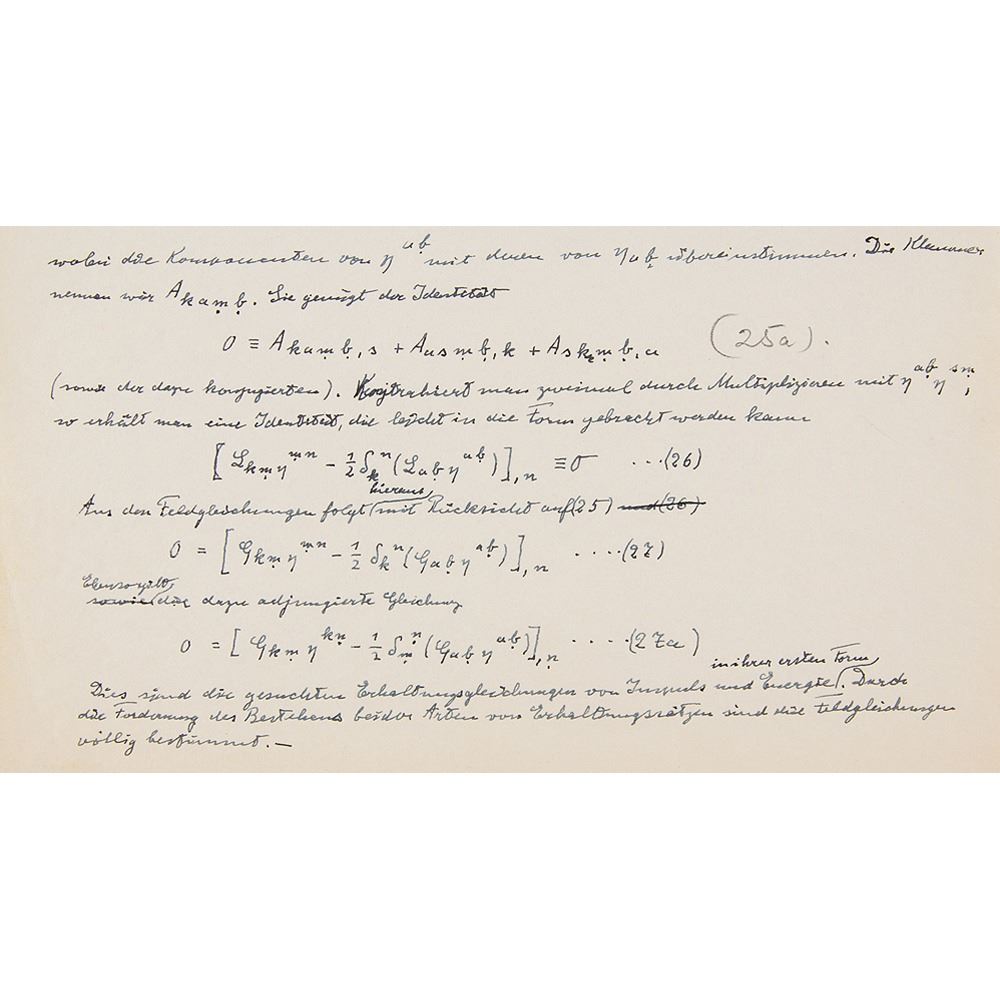 wobei die Komponenten von η^{ab̤} mit denen von η_{ab̤} übereinstimmen. Die Klammer
nennen wir A_{kam̤b̤}. Sie genügt der Identität
0 ≡ A_{kam̤b̤,s} + A_{asm̤b̤,k} + A_{skm̤b̤,a} (25a).
(sowie der dazu konjugierten). Kontrahiert man zweimal durch Multiplizieren mit η^{ab̤} η^{sm̤},
so erhält man eine Identität, die leicht in die Form gebracht werden kann
[L_{km̤} η^{m̤n} - 1/2 δ_k^n (L_{ab̤} η^{ab̤})]_{,n} ≡ 0 ...(26)
hieraus
Aus den Feldgleichungen folgt mit Rücksicht auf (25) und (26)
0 = [G_{km̤} η^{m̤n} - 1/2 δ_k^n (G_{ab̤} η^{ab̤})]_{,n} ....(27)
Ebenso gilt
sowie die dazu adjungierte Gleichung
0 = [G_{km̤} η^{kn̤} - 1/2 δ_{m̤}^{n̤} (G_{ab̤} η^{ab̤})]_{,n̤} ....(27a)
in ihrer ersten Form
Dies sind die gesuchten Erhaltungsgleichungen von Impuls und Energie. Durch
die Forderung des Bestehens beider Arten von Erhaltungssätzen sind die Feldgleichungen
völlig bestimmt. —